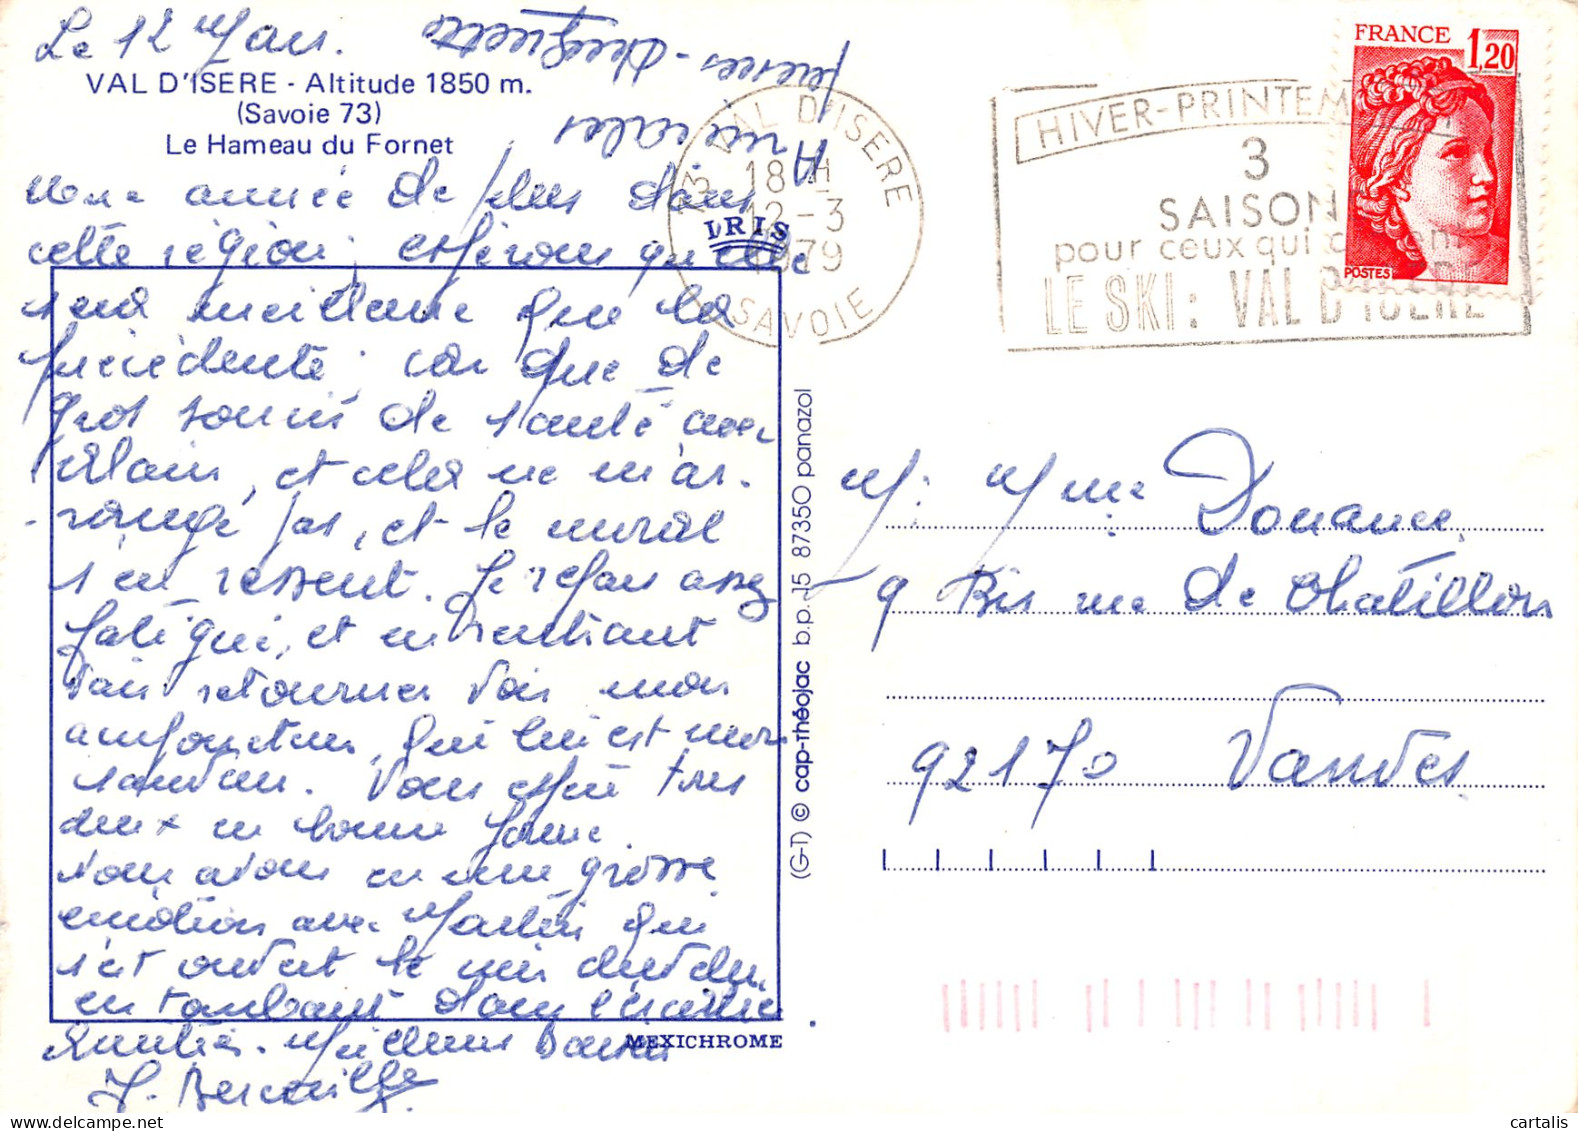 Le 12 Mars.
VAL D'ISERE - Altitude 1850 m.
(Savoie 73)
Le Hameau du Fornet
une année de plus dans
cette région, espérons qu'elle
sera meilleure que la
précédente, car que de
gros soucis de santé avec
Alain, et cela ne m'ar-
-range pas, et le moral
s'en ressent. Je repars assez
fatigué, et en rentrant
vais retourner voir mon
qui lui est mon
sauveur. Vous espère tous
deux en bonne forme.
Nous avons eu une grosse
émotion avec Martin qui
s'est ouvert le
en tombant dans l'escalier
Amitiés. Meilleurs Baisers
MEXICHROME
IRIS
VAL D'ISERE
73
18 H
12-3
1979
SAVOIE
HIVER-PRINTEM
3
SAISON
pour ceux qui
LE SKI: VAL D'ISERE
FRANCE 1,20
POSTES
(G-1) © cap-théojac b.p. 15 87350 panazol
M. Mme Douance
9 Bis rue de Chatillon
92170 Vanves
cartalis